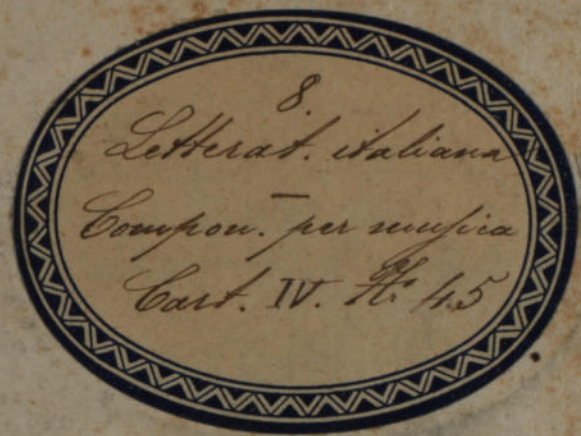 8.
Letterat. italiana
—
Compon. per musica
Cart. IV. N. 45